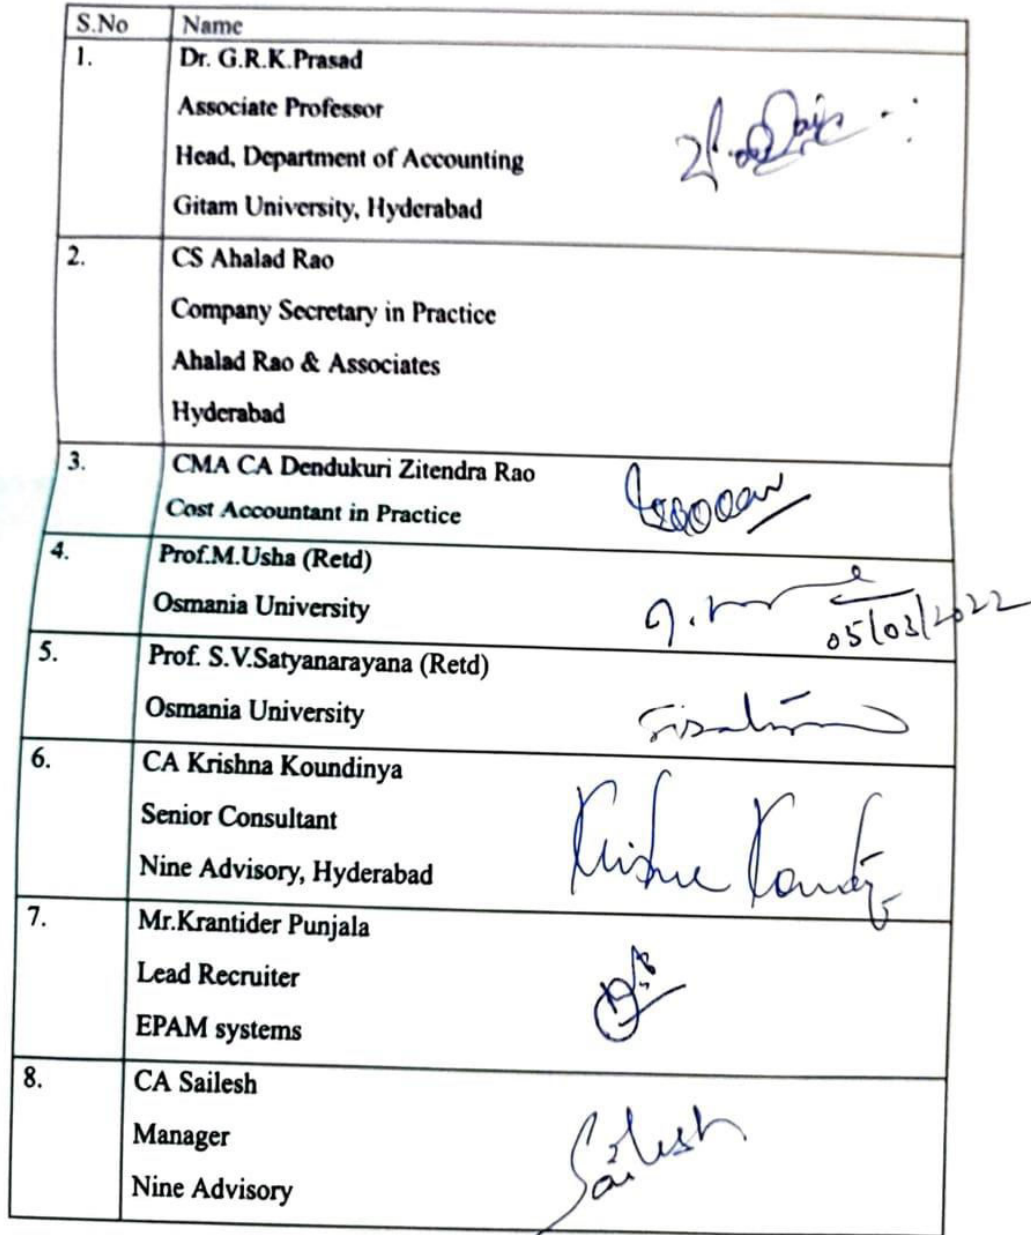 S.No Name
1. Dr. G.R.K.Prasad
Associate Professor
Head, Department of Accounting
Gitam University, Hyderabad
2. CS Ahalad Rao
Company Secretary in Practice
Ahalad Rao & Associates
Hyderabad
3. CMA CA Dendukuri Zitendra Rao
Cost Accountant in Practice
4. Prof.M.Usha (Retd)
Osmania University
05/03/2022
5. Prof. S.V.Satyanarayana (Retd)
Osmania University
6. CA Krishna Koundinya
Senior Consultant
Nine Advisory, Hyderabad
7. Mr.Krantider Punjala
Lead Recruiter
EPAM systems
8. CA Sailesh
Manager
Nine Advisory
Sailesh